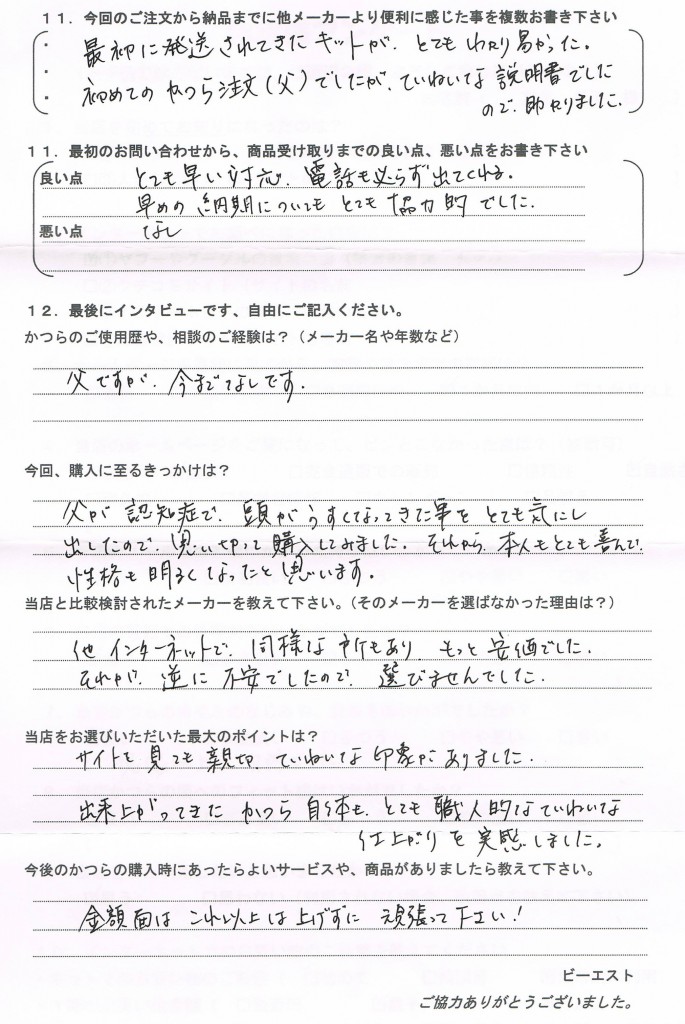 １１．今回のご注文から納品までに他メーカーより便利に感じた事を複数お書き下さい
・ 最初に発送されてきたキットが、とてもわかり易かった。
・ 初めてのかつら注文（父）でしたが、ていねいな説明書でした
・ ので、助かりました。
１１．最初のお問い合わせから、商品受け取りまでの良い点、悪い点をお書き下さい
良い点 とても早い対応、電話も必らず出てくれる。
早めの納期についてもとても協力的でした。
悪い点 なし
１２．最後にインタビューです、自由にご記入ください。
かつらのご使用歴や、相談のご経験は？（メーカー名や年数など）
父ですが、今までなしです。
今回、購入に至るきっかけは？
父が認知症で、頭がうすくなってきた事をとても気にし
出したので、思い切って購入してみました。それから、本人もとても喜んで、
性格も明るくなったと思います。
当店と比較検討されたメーカーを教えて下さい。（そのメーカーを選ばなかった理由は？）
他インターネットで、同様な所もあり もっと安価でした。
それが、逆に不安でしたので、選びませんでした。
当店をお選びいただいた最大のポイントは？
サイトを見ても親切、ていねいな印象がありました。
出来上がってきたかつら自体も、とても職人的なていねいな
仕上がりを実感しました。
今後のかつらの購入時にあったらよいサービスや、商品がありましたら教えて下さい。
金額面はこれ以上は上げずに頑張って下さい！
ビーエスト
ご協力ありがとうございました。